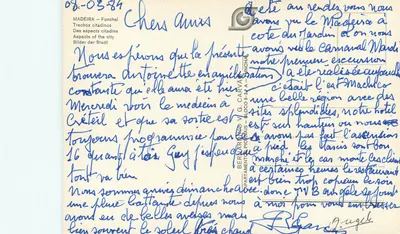 08-03-84
MADEIRA - Funchal
Trechos citadinos
Des aspects citadins
Aspects of the city
Bilder der Stadt
Chers Amis
Nous espérons que la présente
trouvera Antoinette en amélioration
constante qu'elle aura été hier
Mercredi voir le médecin à
Créteil et que sa sortie est
toujours programmée pour le
16 quant à toi Guy j'espère que
tout va bien
Nous sommes arrivés dimanche avec
une pluie battante depuis nous
avons eu de belles averses mais
bien souvent le soleil très chaud
a été au rendez vous nous
avons vu le Madeira à
côté du Jardin et on nous
avons vu le Carnaval Mardi
notre première excursion
a été réalisée
c'était l'est Machico
une belle région avec des
sites splendides, notre hôtel
est sur hauteur ou nous
avons pas fait l'ascension
à pied les taxis sont bon
marché et les car monte les clients
à certaines heures le restaurant
est bien trop copieux besoin
donc
à moi pour vous embrasser
Angèle